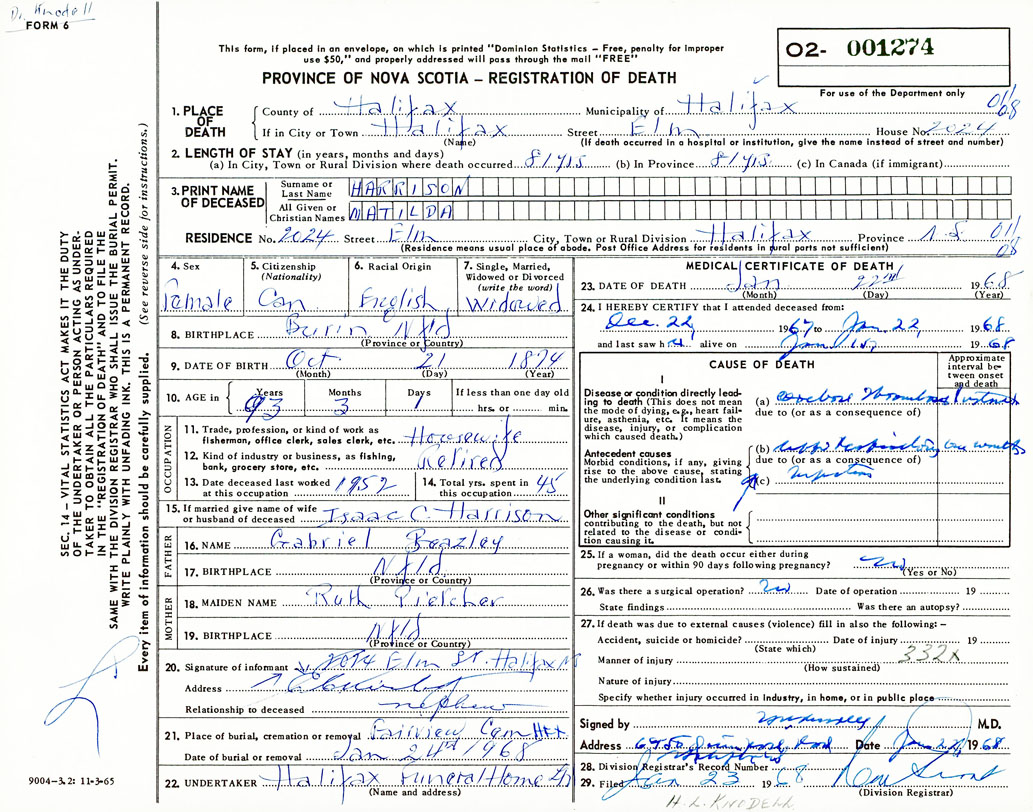 Dr. Knodell
FORM 6
This form, if placed in an envelope, on which is printed "Dominion Statistics – Free, penalty for improper
use $50," and properly addressed will pass through the mail "FREE"
PROVINCE OF NOVA SCOTIA – REGISTRATION OF DEATH
O2- 001274
For use of the Department only
SEC. 14 – VITAL STATISTICS ACT MAKES IT THE DUTY
OF THE UNDERTAKER OR PERSON ACTING AS UNDER-
TAKER TO OBTAIN ALL THE PARTICULARS REQUIRED
IN THE "REGISTRATION OF DEATH" AND TO FILE THE
SAME WITH THE DIVISION REGISTRAR WHO SHALL ISSUE THE BURIAL PERMIT.
WRITE PLAINLY WITH UNFADING INK. THIS IS A PERMANENT RECORD.
Every item of information should be carefully supplied. (See reverse side for instructions.)
1. PLACE OF DEATH
County of Halifax Municipality of Halifax 01/08
If in City or Town Halifax Street Elm House No. 2024
(Name) (If death occurred in a hospital or institution, give the name instead of street and number)
2. LENGTH OF STAY (in years, months and days)
(a) In City, Town or Rural Division where death occurred 81 yrs (b) In Province 81 yrs (c) In Canada (if immigrant)
3. PRINT NAME OF DECEASED
Surname or Last Name HARRISON
All Given or Christian Names MATILDA
RESIDENCE No. 2024 Street Elm City, Town or Rural Division Halifax Province N.S. 01/08
(Residence means usual place of abode. Post Office Address for residents in rural parts not sufficient)
4. Sex Female
5. Citizenship (Nationality) Can
6. Racial Origin English
7. Single, Married, Widowed or Divorced (write the word) Widowed
8. BIRTHPLACE Burin Nfld
(Province or Country)
9. DATE OF BIRTH Oct 21 1874
(Month) (Day) (Year)
10. AGE in Years 93 Months 3 Days 1 If less than one day old
hrs. or min.
OCCUPATION
11. Trade, profession, or kind of work as fisherman, office clerk, sales clerk, etc. Housewife
12. Kind of industry or business, as fishing, bank, grocery store, etc. Retired
13. Date deceased last worked at this occupation 1952
14. Total yrs. spent in this occupation 45
15. If married give name of wife or husband of deceased Isaac C. Harrison
FATHER
16. NAME Gabriel Beazley
17. BIRTHPLACE Nfld
(Province or Country)
MOTHER
18. MAIDEN NAME Ruth
19. BIRTHPLACE Nfld
(Province or Country)
20. Signature of informant 2024 Elm St. Halifax NS
Address
Relationship to deceased nephew
21. Place of burial, cremation or removal Fairview Cem Hfx
Date of burial or removal Jan 24th 1968
22. UNDERTAKER Halifax Funeral Home
(Name and address)
MEDICAL CERTIFICATE OF DEATH
23. DATE OF DEATH Jan 22nd 1968
(Month) (Day) (Year)
24. I HEREBY CERTIFY that I attended deceased from:
Dec. 22, 1967 to Jan 22, 1968
and last saw her alive on Jan 1968
CAUSE OF DEATH
Approximate interval between onset and death
I
Disease or condition directly leading to death (This does not mean the mode of dying, e.g., heart failure, asthenia, etc. It means the disease, injury, or complication which caused death.)
(a) cerebral thrombosis
due to (or as a consequence of)
Antecedent causes
Morbid conditions, if any, giving rise to the above cause, stating the underlying condition last.
(b) upper respiratory
due to (or as a consequence of)
(c)
II
Other significant conditions
contributing to the death, but not related to the disease or condition causing it.
25. If a woman, did the death occur either during pregnancy or within 90 days following pregnancy? no
(Yes or No)
26. Was there a surgical operation? no Date of operation 19
State findings Was there an autopsy?
27. If death was due to external causes (violence) fill in also the following: –
Accident, suicide or homicide? Date of injury 19
(State which)
Manner of injury 332X
(How sustained)
Nature of injury
Specify whether injury occurred in industry, in home, or in public place
Signed by M.D.
Address Date Jan 1968
28. Division Registrar's Record Number
29. Filed Jan 23 1968
(Division Registrar)
9004-3.2: 11-3-65
H.L. KNODELL